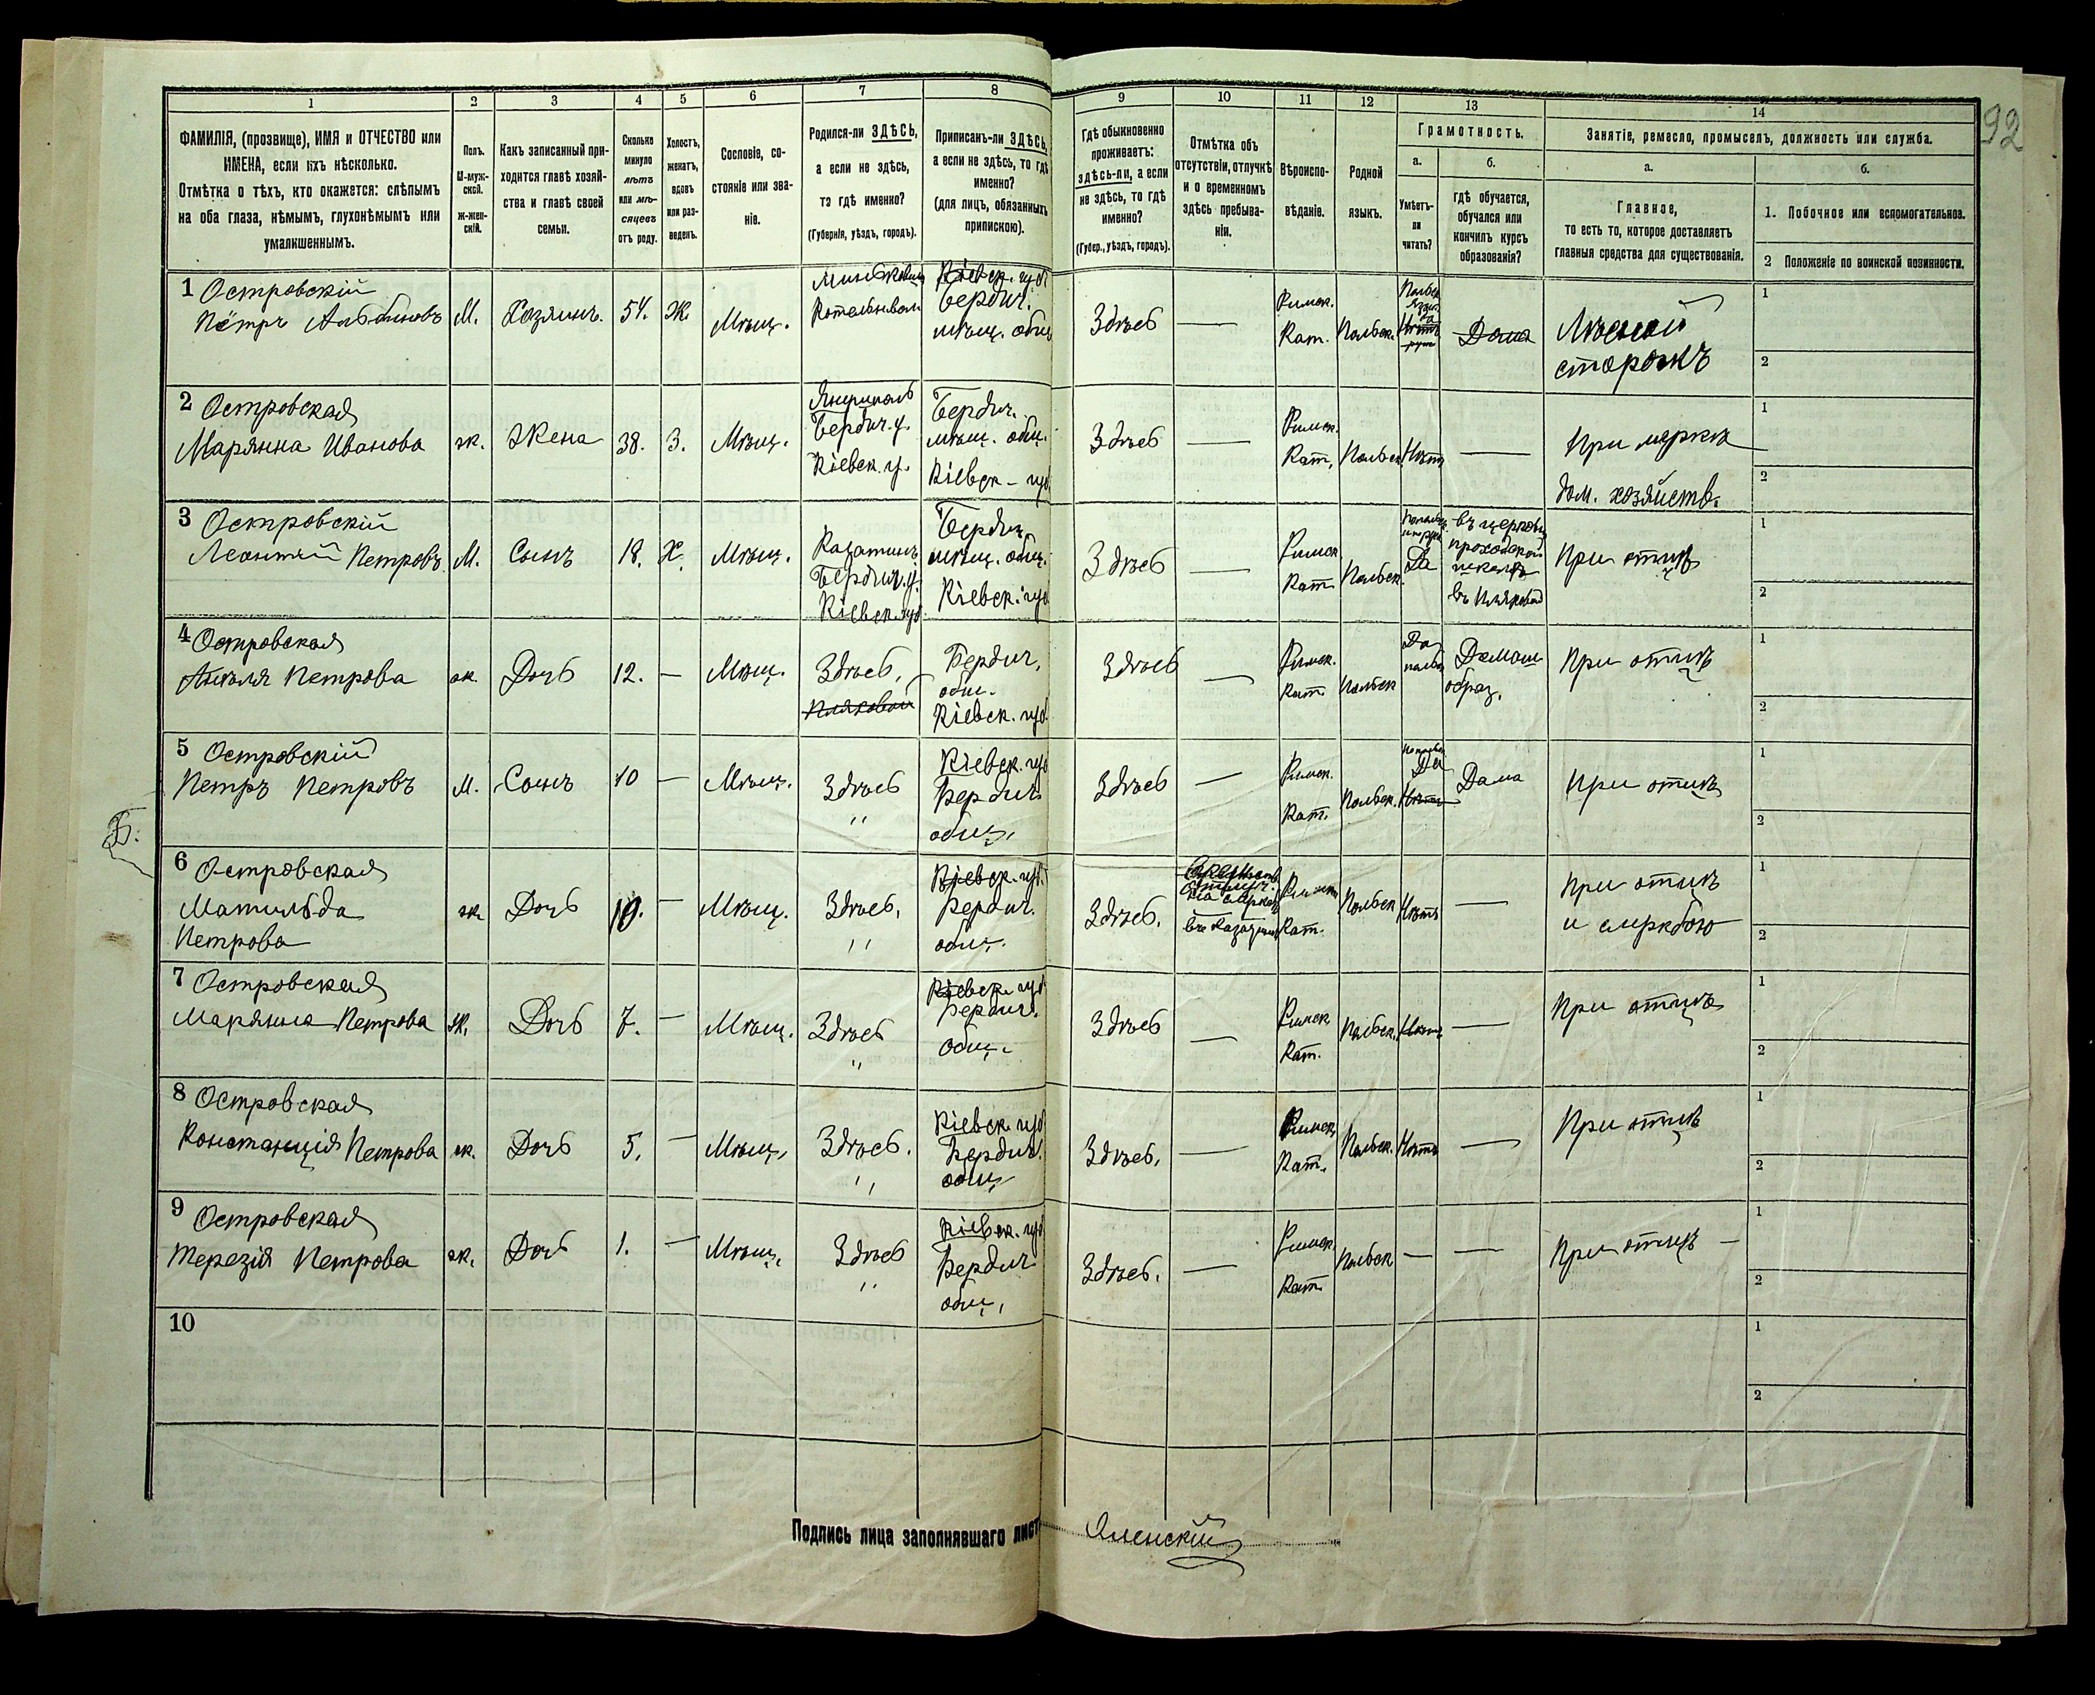 92
1 2 3 4 5 6 7 8 9 10 11 12 13 14
ФАМИЛІЯ, (прозвище), ИМЯ и ОТЧЕСТВО или
ИМЕНА, если ихъ нѣсколько.
Отмѣтка о тѣхъ, кто окажется: слѣпымъ
на оба глаза, нѣмымъ, глухонѣмымъ или
умалишеннымъ.
Полъ.
М-муж-
ской.
Ж-жен-
скій.
Какъ записанный при-
ходится главѣ хозяй-
ства и главѣ своей
семьи.
Сколько
минуло
лѣтъ
или мѣ-
сяцевъ
отъ роду.
Холостъ,
женатъ,
вдовъ
или раз-
веденъ.
Сословіе, со-
стояніе или зва-
ніе.
Родился-ли ЗДѢСЬ,
а если не здѣсь,
то гдѣ именно?
(Губернія, уѣздъ, городъ).
Приписанъ-ли ЗДѢСЬ,
а если не здѣсь, то гдѣ
именно?
(для лицъ, обязанныхъ
припискою).
Гдѣ обыкновенно
проживаетъ:
здѣсь-ли, а если
не здѣсь, то гдѣ
именно?
(Губер., уѣздъ, городъ).
Отмѣтка объ
отсутствіи, отлучкѣ
и о временномъ
здѣсь пребыва-
ніи.
Вѣроиспо-
вѣданіе.
Родной
языкъ.
Грамотность.
а.
Умѣетъ-
ли
читать?
б.
гдѣ обучается,
обучался или
кончилъ курсъ
образованія?
Занятіе, ремесло, промыселъ, должность или служба.
а.
Главное,
то есть то, которое доставляетъ
главныя средства для существованія.
б.
1. Побочное или вспомогательное.
2 Положеніе по воинской повинности.
1 Островскій
Пётръ Альбиновъ М. Хозяинъ. 54. Ж. Мѣщ.
Кіевск. губ.
Бердич.
мѣщ. общ.
Здѣсь —
Римск.
Кат. Польск.
Дома
Лѣсной
сторожъ
1
2
2 Островская
Марянна Иванова ж. Жена 38. З. Мѣщ.
Бердич. у.
Кіевск. г.
Бердич.
мѣщ. общ.
Кіевск - губ
Здѣсь —
Римск.
Кат. Польск Нѣтъ —
При
дом. хозяйств.
1
2
3 Островскій
Леонтій Петровъ М. Сынъ 18. Х. Мѣщ.
Казатинъ
Бердич. у.
Кіевск. губ
Бердич.
мѣщ. общ.
Кіевск. губ
Здѣсь —
Римск
Кат Польск. Да
въ
школѣ
При отцѣ
1
2
4 Островская
Анеля Петрова ж. Дочь 12. — Мѣщ. Здѣсь,
Бердич,
общ.
Кіевск. губ.
Здѣсь —
Римск.
Кат. Польск
Да
Домаш
образ.
При отцѣ
1
2
5 Островскій
Петръ Петровъ М. Сынъ 10 — Мѣщ. Здѣсь
"
Кіевск. губ
Бердич.
общ.
Здѣсь —
Римск.
Кат. Польск. Да Нѣтъ
Дома
При отцѣ
1
2
6 Островская
Матильда
Петрова
ж. Дочь — Мѣщ. Здѣсь,
"
Кіевск. губ.
Бердич.
общ.
Здѣсь.
Кат. Польск Нѣтъ —
При отцѣ
1
2
7 Островская
Марянна Петрова ж. Дочь 7. — Мѣщ. Здѣсь
"
Кіевск. губ
Бердич.
общ.
Здѣсь —
Римск
Кат. Польск. Нѣтъ —
При отцѣ
1
2
8 Островская
Констанція Петрова ж. Дочь 5. — Мѣщ. Здѣсь.
"
Кіевск. губ
Бердич.
общ
Здѣсь. —
Римск.
Кат. Польск. Нѣтъ —
При отцѣ
1
2
9 Островская
Терезія Петрова ж. Дочь 1. — Мѣщ. Здѣсь
"
Кіевск. губ
Бердич
общ.
Здѣсь. —
Римск.
Кат Польск — —
При отцѣ —
1
2
10
1
2
Подпись лица заполнявшаго лист